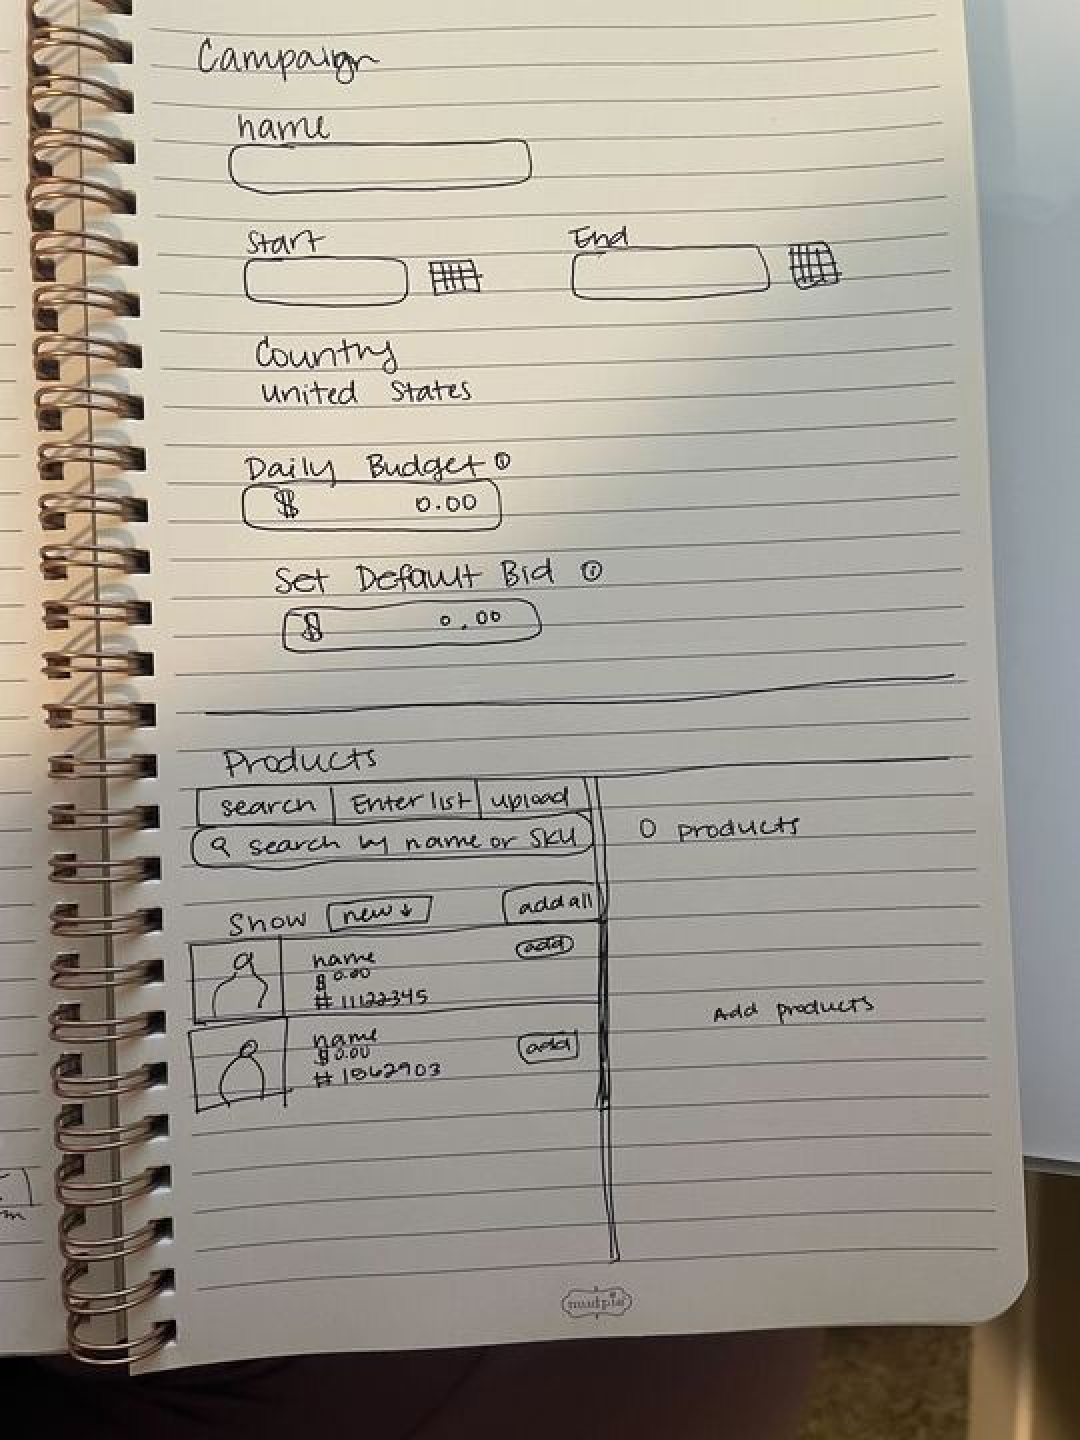 Campaign
name
Start End
Country
United States
Daily Budget i
$ 0.00
Set Default Bid i
$ 0.00
Products
search Enter list upload
search by name or SKU
0 products
Show new ↓ add all
name add
$0.00
# 11122345
Add products
name
$0.00 add
# 1862903
mudpie